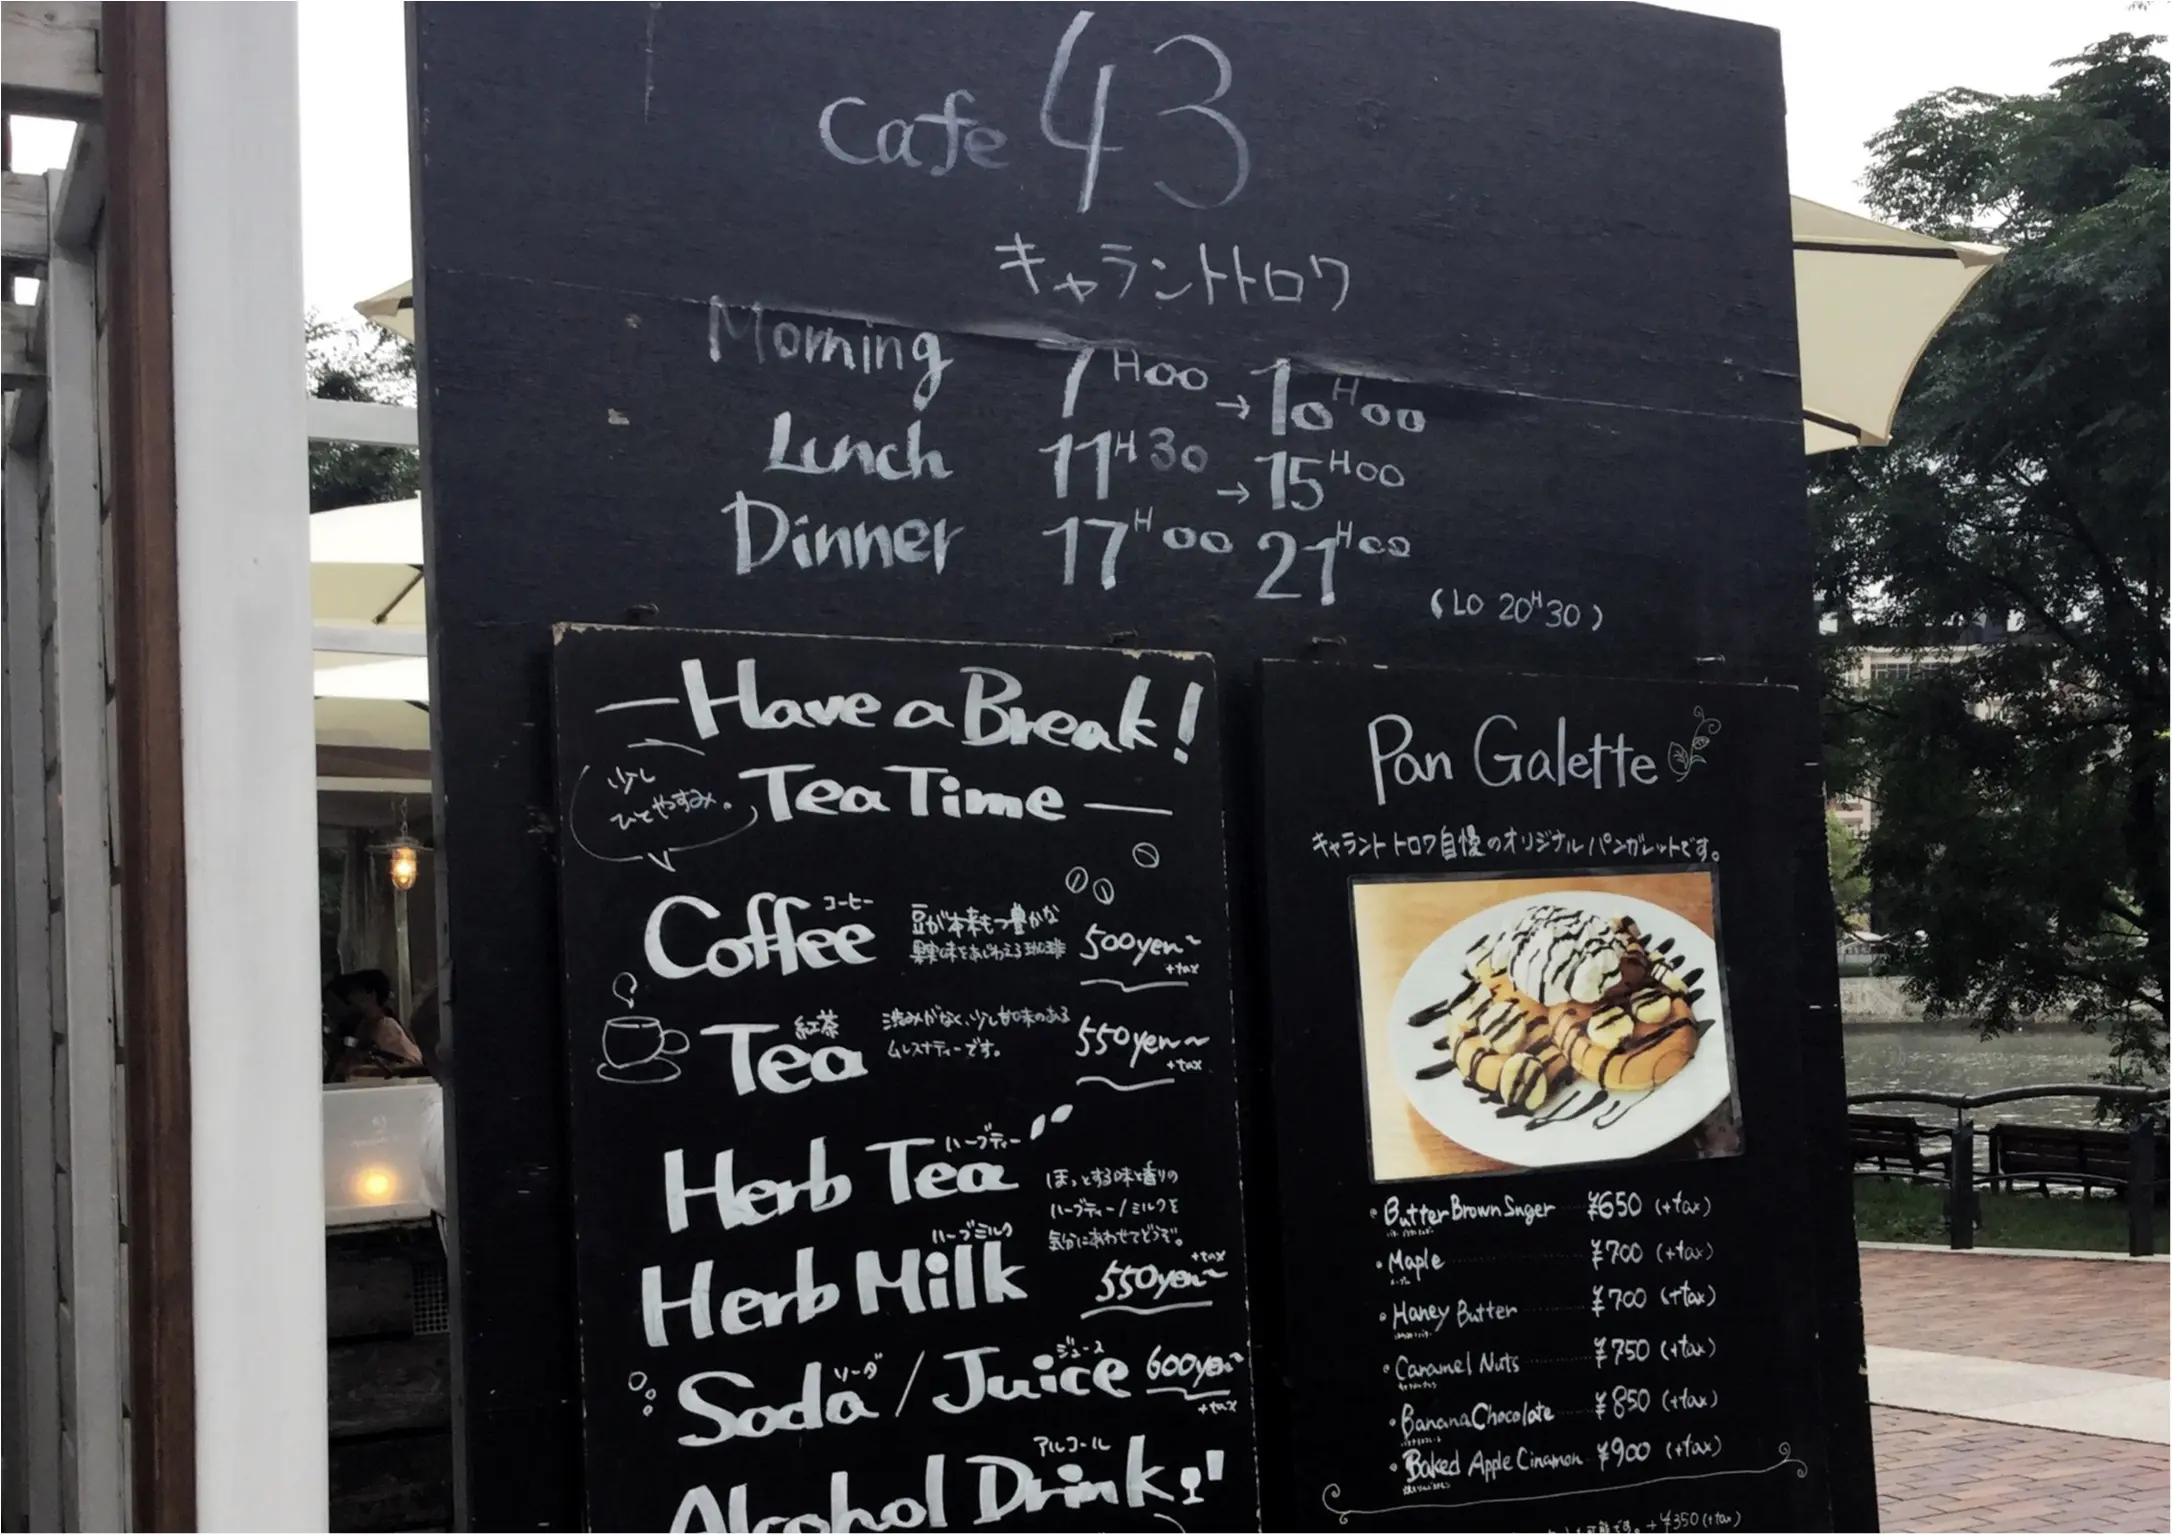 Cafe 43
キャラントトロワ
Morning 7H00 → 10H00
Lunch 11H30 → 15H00
Dinner 17H00 21H00
(LO 20H30)
Have a Break!
少し
ひとやすみ。
Tea Time
コーヒー
Coffee
豆が本来もつ豊かな
風味をあじわえる珈琲
500yen~
+tax
紅茶
Tea
渋みがなく、少し甘味のある
ムレスナティーです。
550yen~
+tax
ハーブティー
Herb Tea
ほっとする味と香りの
ハーブティー/ミルクを
気分にあわせてどうぞ。
ハーブミルク
Herb Milk
+tax
550yen~
ソーダ ジュース
Soda / Juice 600yen~
+tax
アルコール
Alcohol Drink
Pan Galette
キャラント トロワ自慢のオリジナルパンガレットです。
・Butter Brown Suger ¥650 (+tax)
・Maple ¥700 (+tax)
メープル
・Haney Butter ¥700 (+tax)
・Caramel Nuts ¥750 (+tax)
・Banana Chocolate ¥850 (+tax)
・Baked Apple Cinamon ¥900 (+tax)
です。+¥350(+tax)